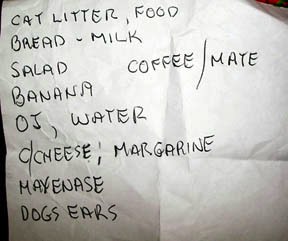 CAT LITTER, FOOD
BREAD - MILK
SALAD COFFEE/MATE
BANANA
OJ, WATER
C/CHEESE; MARGARINE
MAYENASE
DOGS EARS